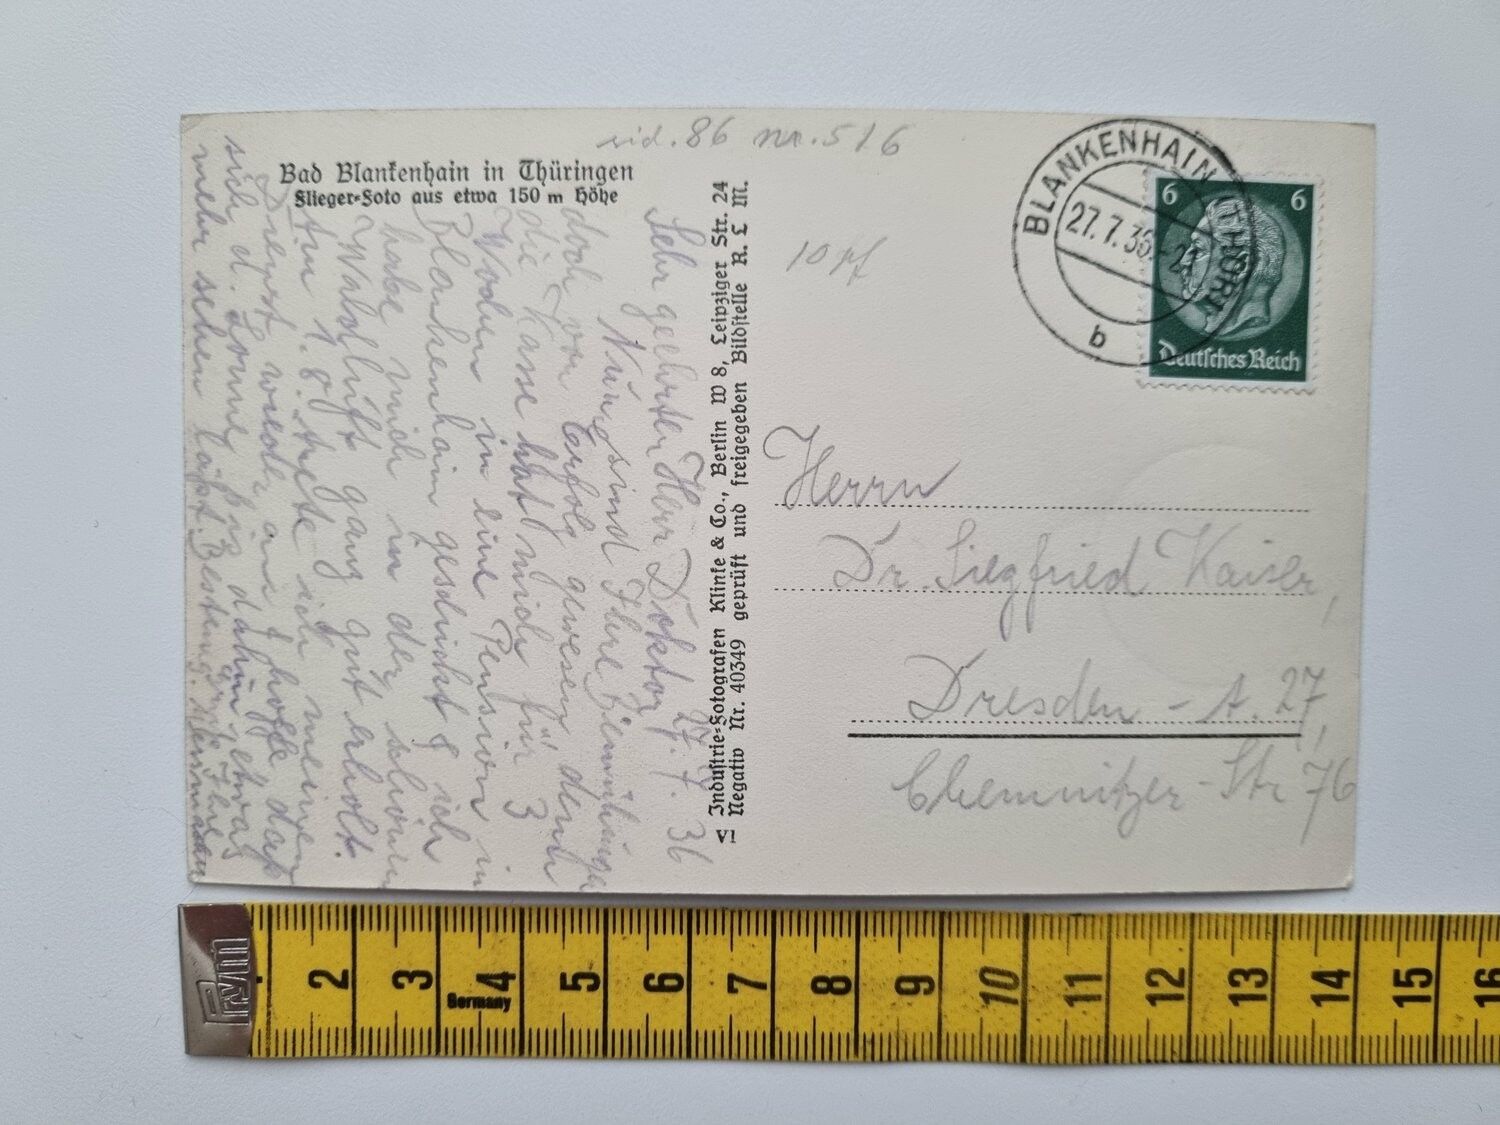 sid. 86 nr. 516
Bad Blankenhain in Thüringen
Flieger-Foto aus etwa 150 m Höhe
27. 7. 36
Sehr geehrter Herr Doktor!
Nun sind Ihre Bemühungen
doch von Erfolg gewesen denn
die Kasse hat mich für 3
Wochen in eine Pension in
Blankenhain geschickt & ich
habe mich in der schönen
Waldluft ganz gut erholt.
Am 1. 8. trete ich meinen
Dienst wieder an & hoffe daß
sich d. Sonne bis dahin etwas
mehr sehen läßt. Bestens grüßt Ihre
Industrie-Fotografen Klinke & Co., Berlin W 8, Leipziger Str. 24
Negativ Nr. 40349 geprüft und freigegeben Bildstelle R. L. M.
VI
10 pf
BLANKENHAIN (THÜR)
27.7.36
b
6 6
Deutsches Reich
Herrn
Dr. Siegfried Kaiser,
Dresden - A. 27,
Chemnitzer-Str 76
Prym
2 3 4 5 6 7 8 9 10 11 12 13 14 15 16
Germany